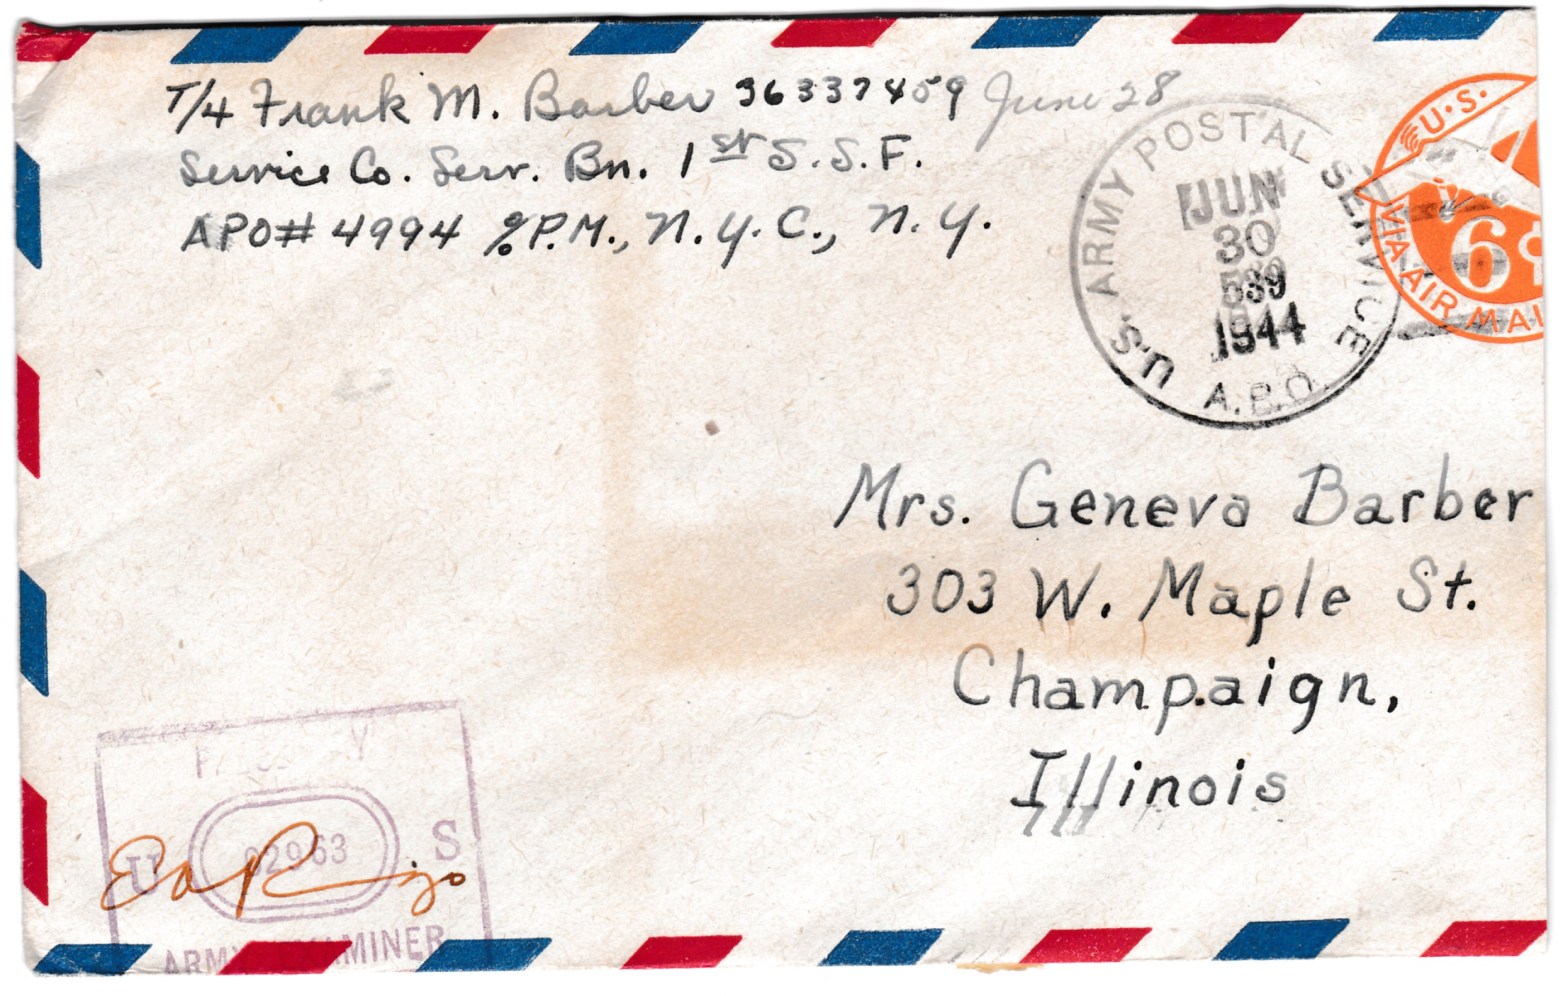 T/4 Frank M. Barber 36337459 June 28
Service Co. Serv. Bn. 1st S.S.F.
APO# 4994 % P.M., N.Y.C., N.Y.
U.S. ARMY POSTAL SERVICE
JUN
30
539
1944
A.P.O.
U.S.
6¢
VIA AIR MAIL
Mrs. Geneva Barber
303 W. Maple St.
Champaign,
Illinois
U 02963 S
ARMY EXAMINER